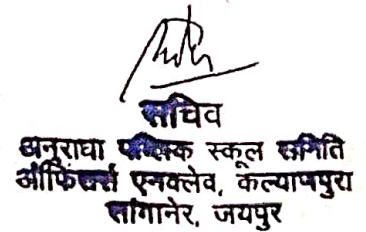 सचिव
अनुराधा पब्लिक स्कूल समिति
ऑफिसर्स एनक्लेव, कल्याणपुरा
सांगानेर, जयपुर